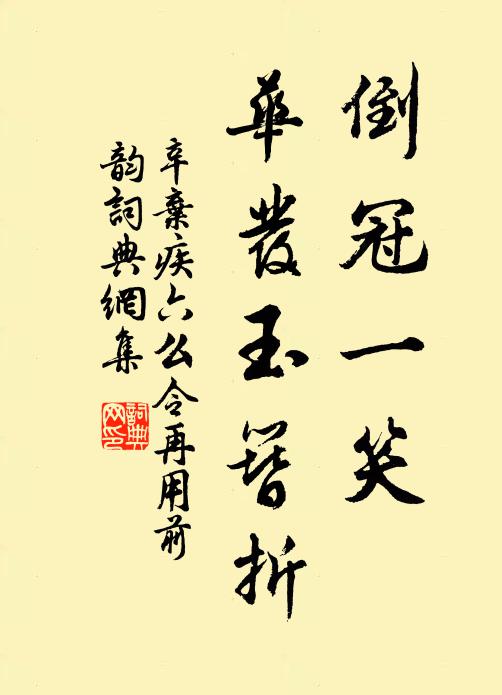 倒冠一笑
華發玉簪折
辛棄疾六么令再用前
韵詞典網集
詞典
网印